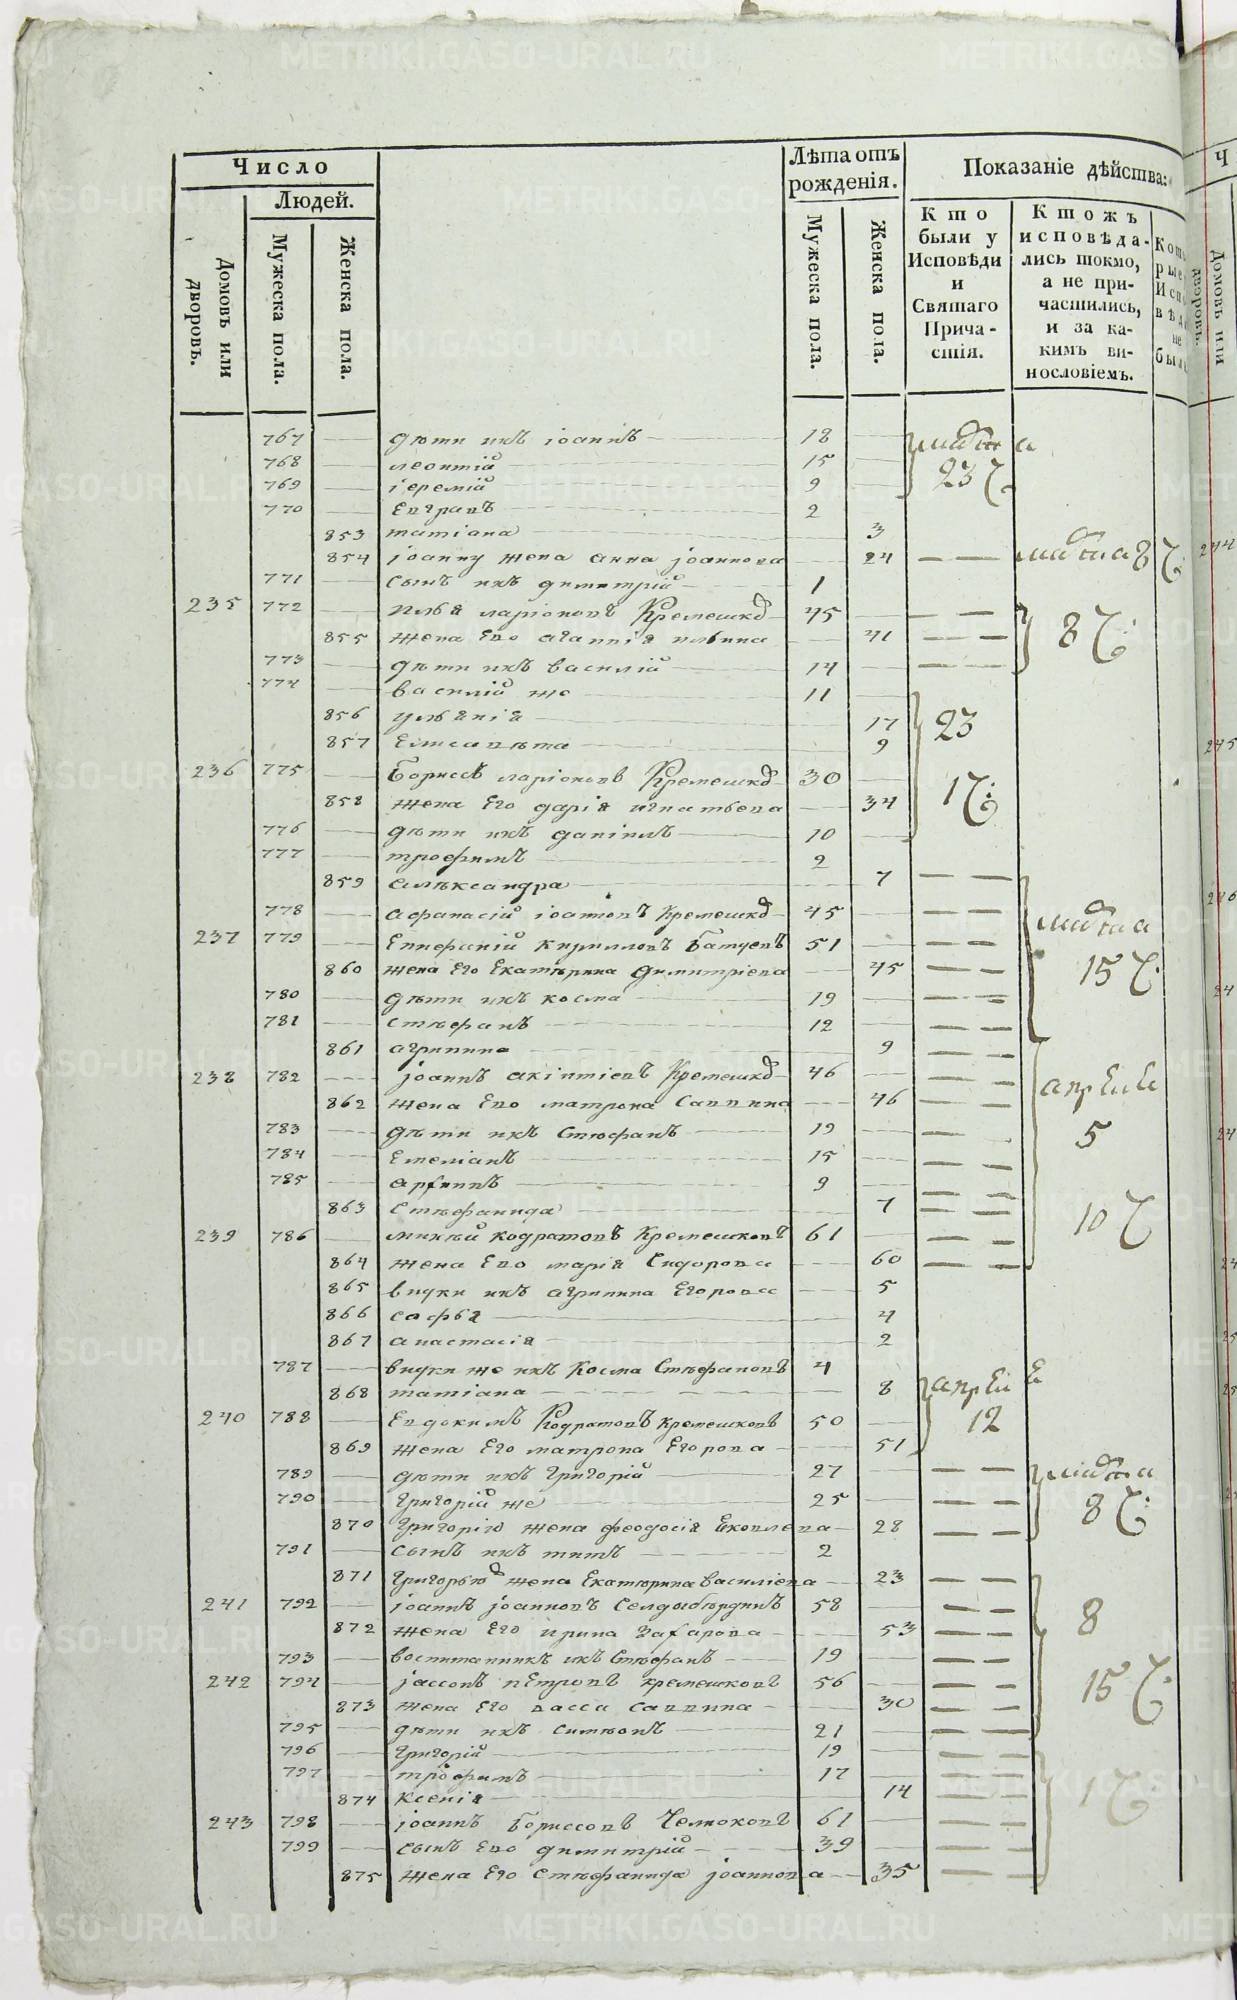 Число
Людей.
Домовъ или дворовъ.
Мужеска пола.
Женска пола.
Лѣта отъ рожденія.
Мужеска пола.
Женска пола.
Показаніе дѣйства:
Кто были у Исповѣди и Святаго Причастія.
Ктожъ исповѣдались токмо, а не причастились, и за какимъ винословіемъ.
767 дѣти ихъ іоаннъ 18
768 леонтій 15
769 іеремій 9
770 Евграфъ 2
853 татіана 3
854 іоанну жена анна іоаннова 24
771 сынъ ихъ димитрій 1
235 772 илья ларіоновъ Кремешковъ 45
855 жена Его агаппія ильина 41
773 дѣти ихъ василій 14
774 василій же 11
856 ульянія 17
857 Елисавѣта 9
236 775 Борисъ ларіоновъ Кремешковъ 30
858 жена Его дарія игнатьева 34
776 дѣти ихъ даніилъ 10
777 трофимъ 2
859 алѣксандра 7
778 афанасій Кремешковъ 45
237 779 Епифаній кирилловъ Батуевъ 51
860 жена Его Екатѣрина димитріева 45
780 дѣти ихъ косма 19
781 стѣфанъ 12
861 агрипина 9
238 782 іоаннъ Кремешковъ 46
862 жена Его матрона Саввина 46
783 дѣти ихъ Стѣфанъ 19
784 Емеліанъ 15
785 архиппъ 9
863 Стѣфанида 7
239 786 михѣй кодратовъ Кремешковъ 61
864 жена Его марія Сидорова 60
865 внуки ихъ агрипина Егорова 5
866 софья 4
867 анастасія 2
787 внуки же ихъ Косма Стѣфановъ 4
868 татіана 8
240 788 Евдокимъ Кодратовъ Кремешковъ 50
869 жена Его матрона Егорова 51
789 дѣти ихъ Григорій 27
790 Григорій же 25
870 Григорію жена феодосія Яковлева 28
791 сынъ ихъ титъ 2
871 Григорью жена Екатѣрина василіева 23
241 792 іоаннъ іоанновъ 58
872 жена Его ирина Захарова 53
793 воспитанникъ ихъ Стѣфанъ 19
242 794 іассонъ пЕтровъ кремешковъ 56
873 жена Его васса Саввина 30
795 дѣти ихъ симѣонъ 21
796 Григорій 19
797 трофимъ 17
874 Ксенія 14
243 798 іоаннъ Борисовъ 61
799 сынъ Его димитрій 39
875 жена Его Стѣфанида іоаннова 35
марта
23
марта 8
8
23
17
марта
15
апреля
5
10
апреля
12
марта
8
8
15
1
METRIKI.GASO-URAL.RU